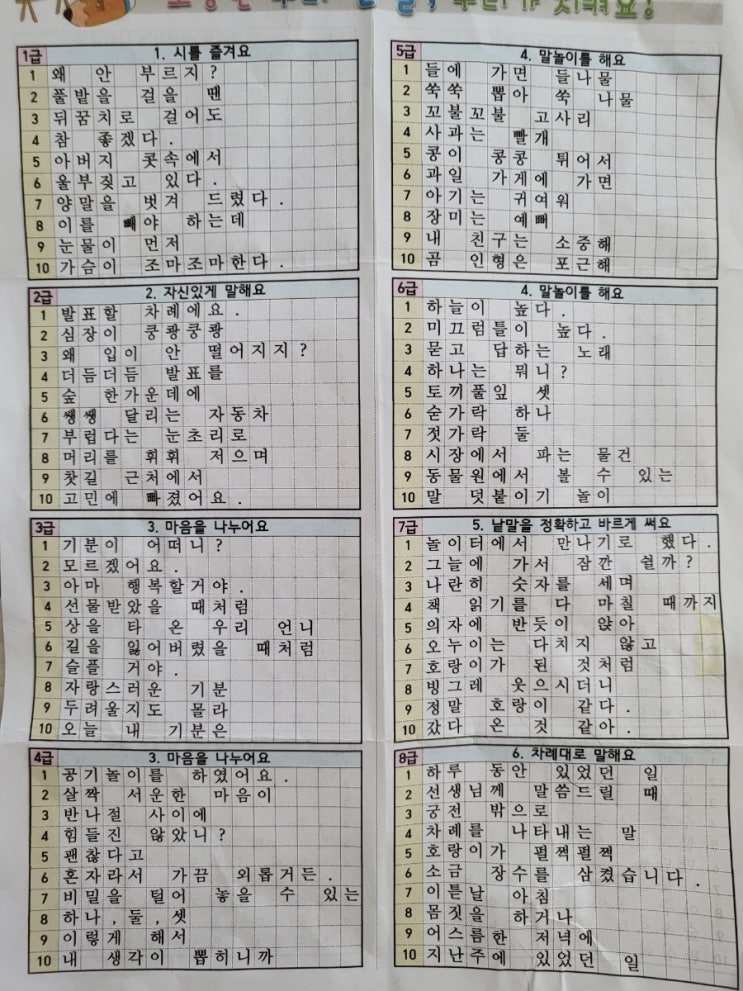 우리가 지켜요!
1급 1. 시를 즐겨요
1 왜 안 부르지?
2 풀밭을 걸을 땐
3 뒤꿈치로 걸어도
4 참 좋겠다.
5 아버지 콧속에서
6 울부짖고 있다.
7 양말을 벗겨 드렸다.
8 이를 빼야 하는데
9 눈물이 먼저
10 가슴이 조마조마한다.
2급 2. 자신있게 말해요
1 발표할 차례에요.
2 심장이 쿵쾅쿵쾅
3 왜 입이 안 떨어지지?
4 더듬더듬 발표를
5 숲 한가운데에
6 쌩쌩 달리는 자동차
7 부럽다는 눈초리로
8 머리를 휘휘 저으며
9 찻길 근처에서
10 고민에 빠졌어요.
3급 3. 마음을 나누어요
1 기분이 어떠니?
2 모르겠어요.
3 아마 행복할거야.
4 선물받았을 때처럼
5 상을 타 온 우리 언니
6 길을 잃어버렸을 때처럼
7 슬플 거야.
8 자랑스러운 기분
9 두려울지도 몰라
10 오늘 내 기분은
4급 3. 마음을 나누어요
1 공기놀이를 하였어요.
2 살짝 서운한 마음이
3 반나절 사이에
4 힘들진 않았니?
5 괜찮다고
6 혼자라서 가끔 외롭거든.
7 비밀을 털어 놓을 수 있는
8 하나,둘,셋
9 이렇게 해서
10 내 생각이 뽑히니까
5급 4. 말놀이를 해요
1 들에 가면 들나물
2 쑥쑥 뽑아 쑥 나물
3 꼬불꼬불 고사리
4 사과는 빨개
5 콩이 콩콩 튀어서
6 과일 가게에 가면
7 아기는 귀여워
8 장미는 예뻐
9 내 친구는 소중해
10 곰 인형은 포근해
6급 4. 말놀이를 해요
1 하늘이 높다.
2 미끄럼틀이 높다.
3 묻고 답하는 노래
4 하나는 뭐니?
5 토끼풀잎 셋
6 숟가락 하나
7 젓가락 둘
8 시장에서 파는 물건
9 동물원에서 볼 수 있는
10 말 덧붙이기 놀이
7급 5. 낱말을 정확하고 바르게 써요
1 놀이터에서 만나기로 했다.
2 그늘에 가서 잠깐 쉴까?
3 나란히 숫자를 세며
4 책 읽기를 다 마칠 때까지
5 의자에 반듯이 앉아
6 오누이는 다치지 않고
7 호랑이가 된 것처럼
8 빙그레 웃으시더니
9 정말 호랑이 같다.
10 갔다 온 것 같아.
8급 6. 차례대로 말해요
1 하루 동안 있었던 일
2 선생님께 말씀드릴 때
3 궁전 밖으로
4 차례를 나타내는 말
5 호랑이가 펄쩍펄쩍
6 소금 장수를 삼켰습니다.
7 이튿날 아침
8 몸짓을 하거나
9 어스름한 저녁에
10 지난주에 있었던 일